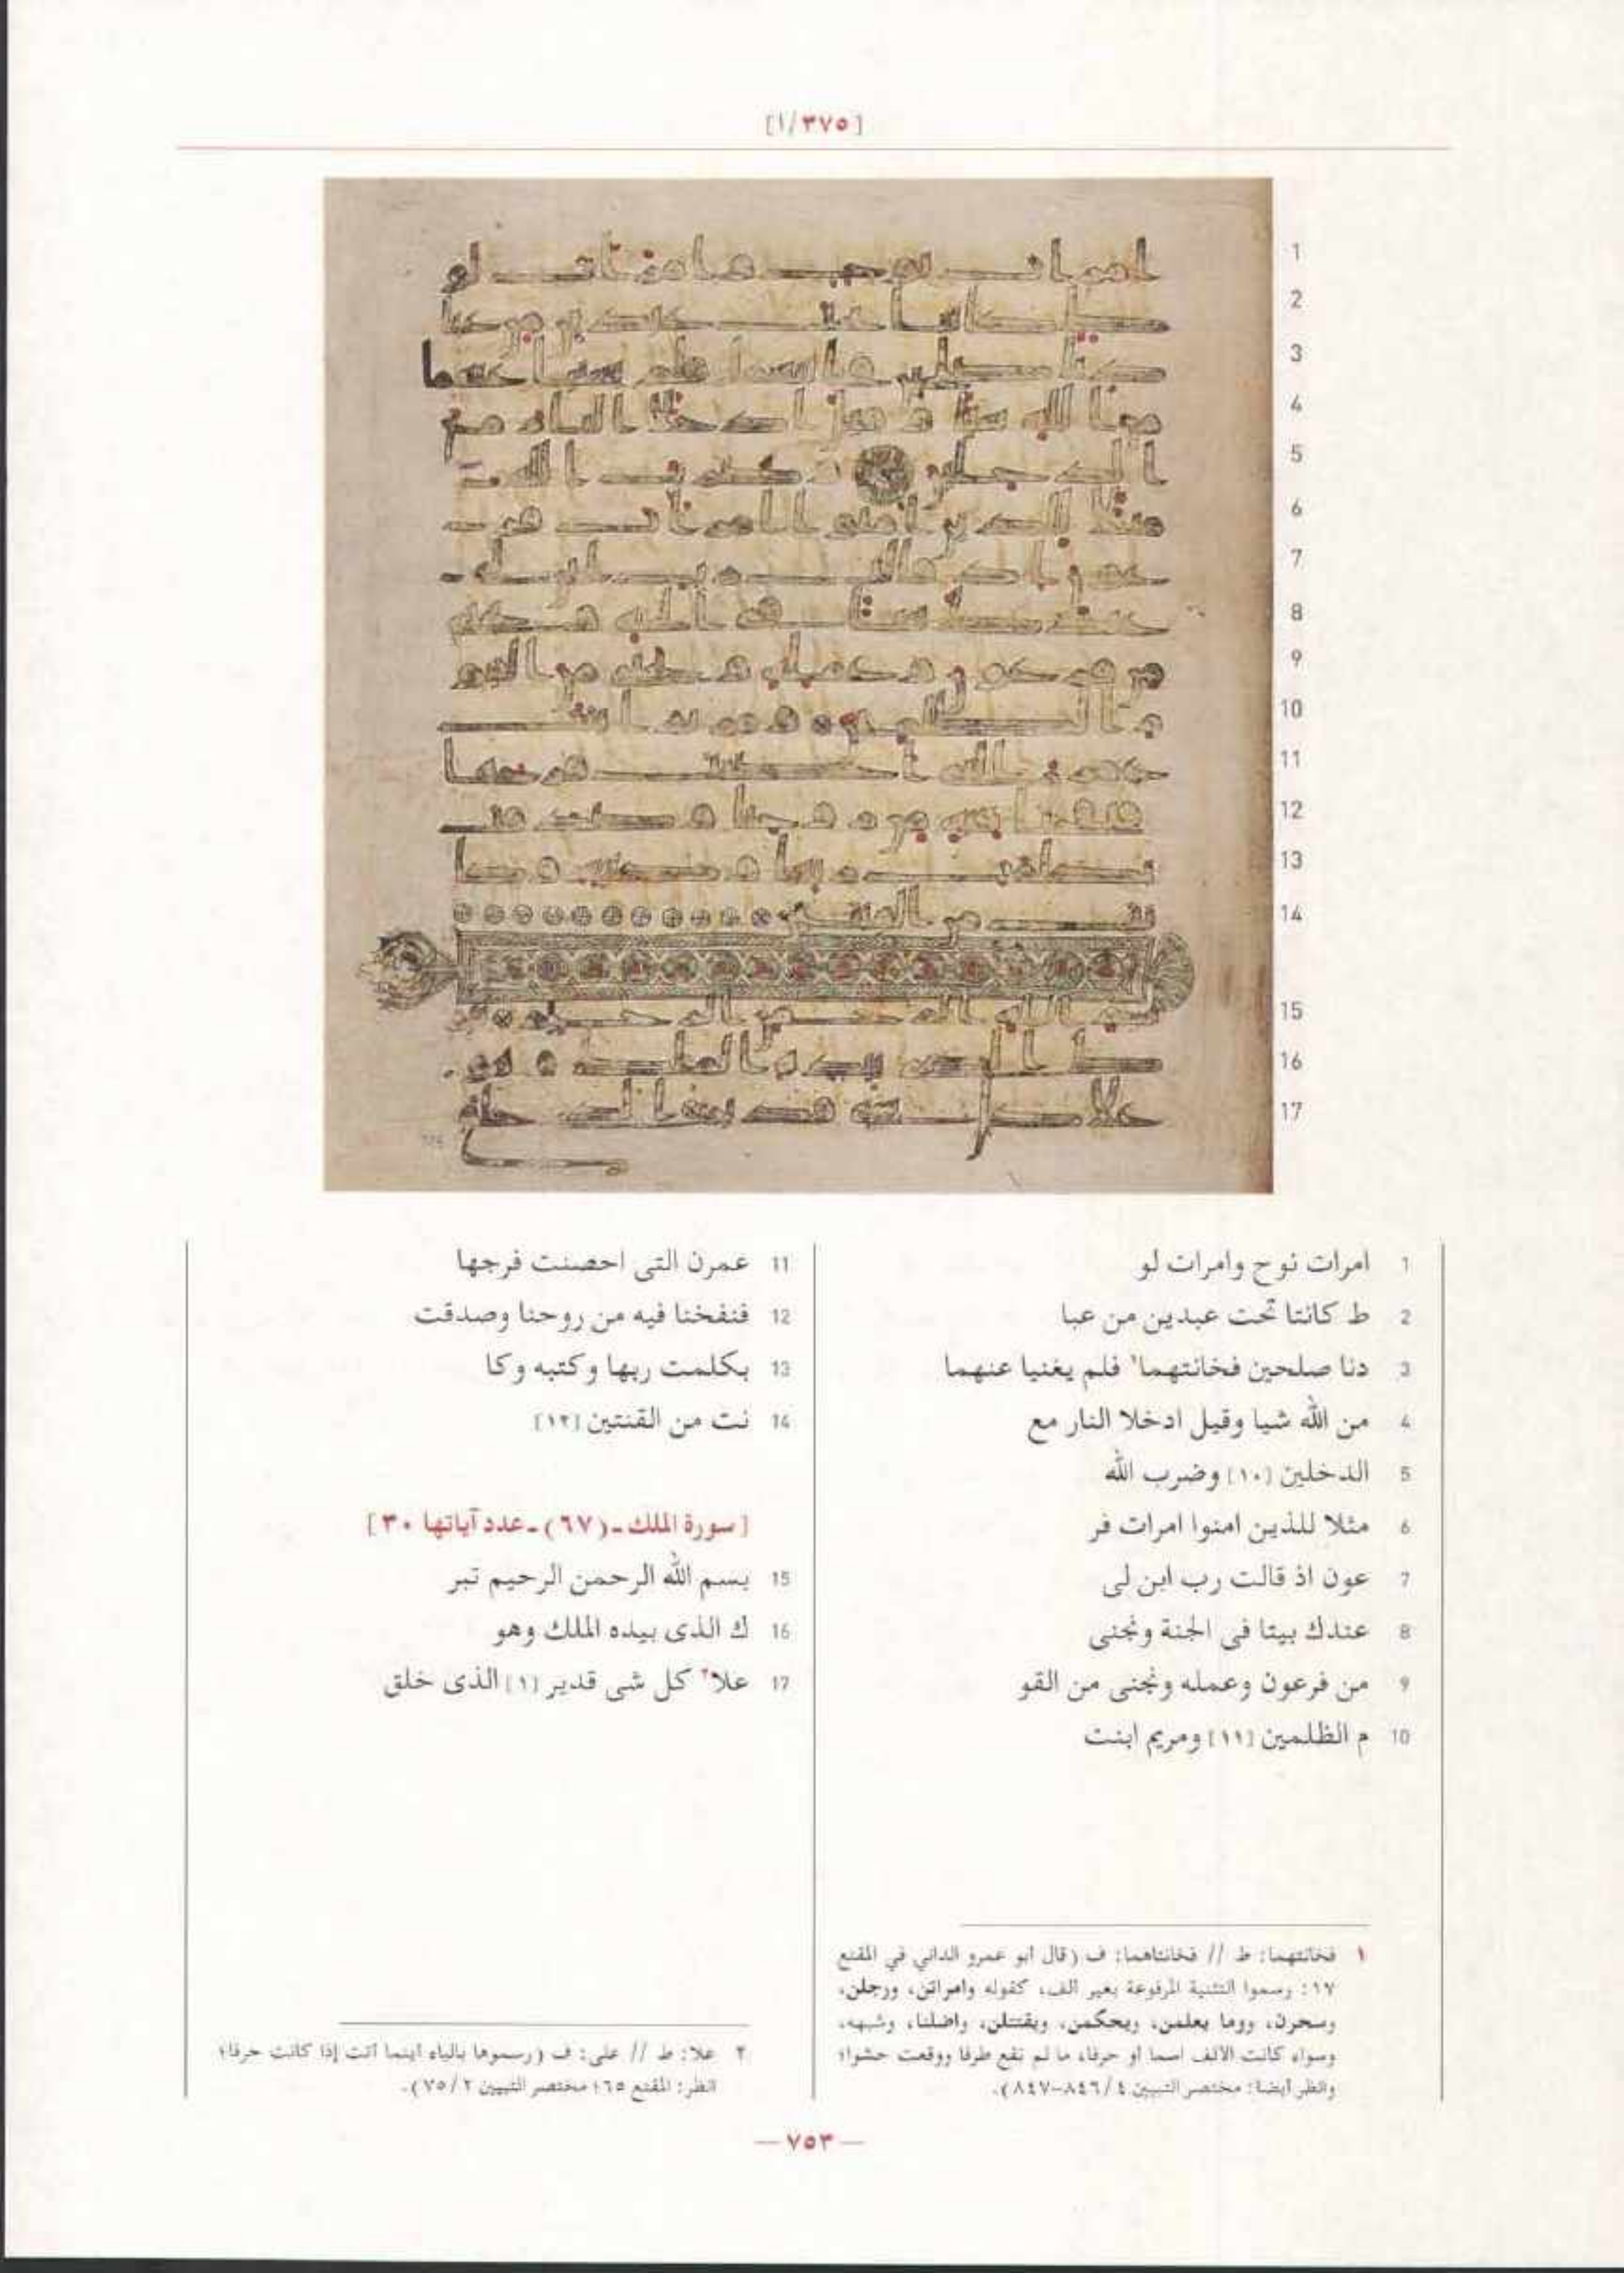 [١/٣٧٥]
1
2
3
4
5
6
7
8
9
10
11
12
13
14
15
16
17
1 امرات نوح وامرات لو
2 ط كانتا تحت عبدين من عبا
3 دنا صلحين فخانتهما١ فلم يغنيا عنهما
4 من الله شيا وقيل ادخلا النار مع
5 الدخلين [١٠] وضرب الله
6 مثلا للذين امنوا امرات فر
7 عون اذ قالت رب ابن لى
8 عندك بيتا فى الجنة ونجنى
9 من فرعون وعمله ونجنى من القو
10 م الظلمين [١١] ومريم ابنت
11 عمرن التى احصنت فرجها
12 فنفخنا فيه من روحنا وصدقت
13 بكلمت ربها وكتبه وكا
14 نت من القنتين [١٢]
[سورة الملك-(٦٧)-عدد آياتها ٣٠]
15 بسم الله الرحمن الرحيم تبر
16 ك الذى بيده الملك وهو
17 علا٢ كل شى قدير [١] الذى خلق
١ فخانتهما: ط // فخانتاهما: ف (قال أبو عمرو الداني في المقنع
١٧: رسموا التثنية المرفوعة بغير الف، كقوله وامراتن، ورجلن،
وسحرن، ووما يعلمن، ويحكمن، ويقتتلن، واضلنا، وشبهه،
وسواء كانت الألف اسما أو حرفا، ما لم تقع طرفا ووقعت حشوا؛
وانظر أيضا: مختصر التبيين ٤/ ٨٤٦-٨٤٧).
٢ علا: ط // على: ف (رسموها بالياء أينما أتت إذا كانت حرفا؛
انظر: المقنع ٦٥؛ مختصر التبيين ٢/ ٧٥).
— ٧٥٣ —